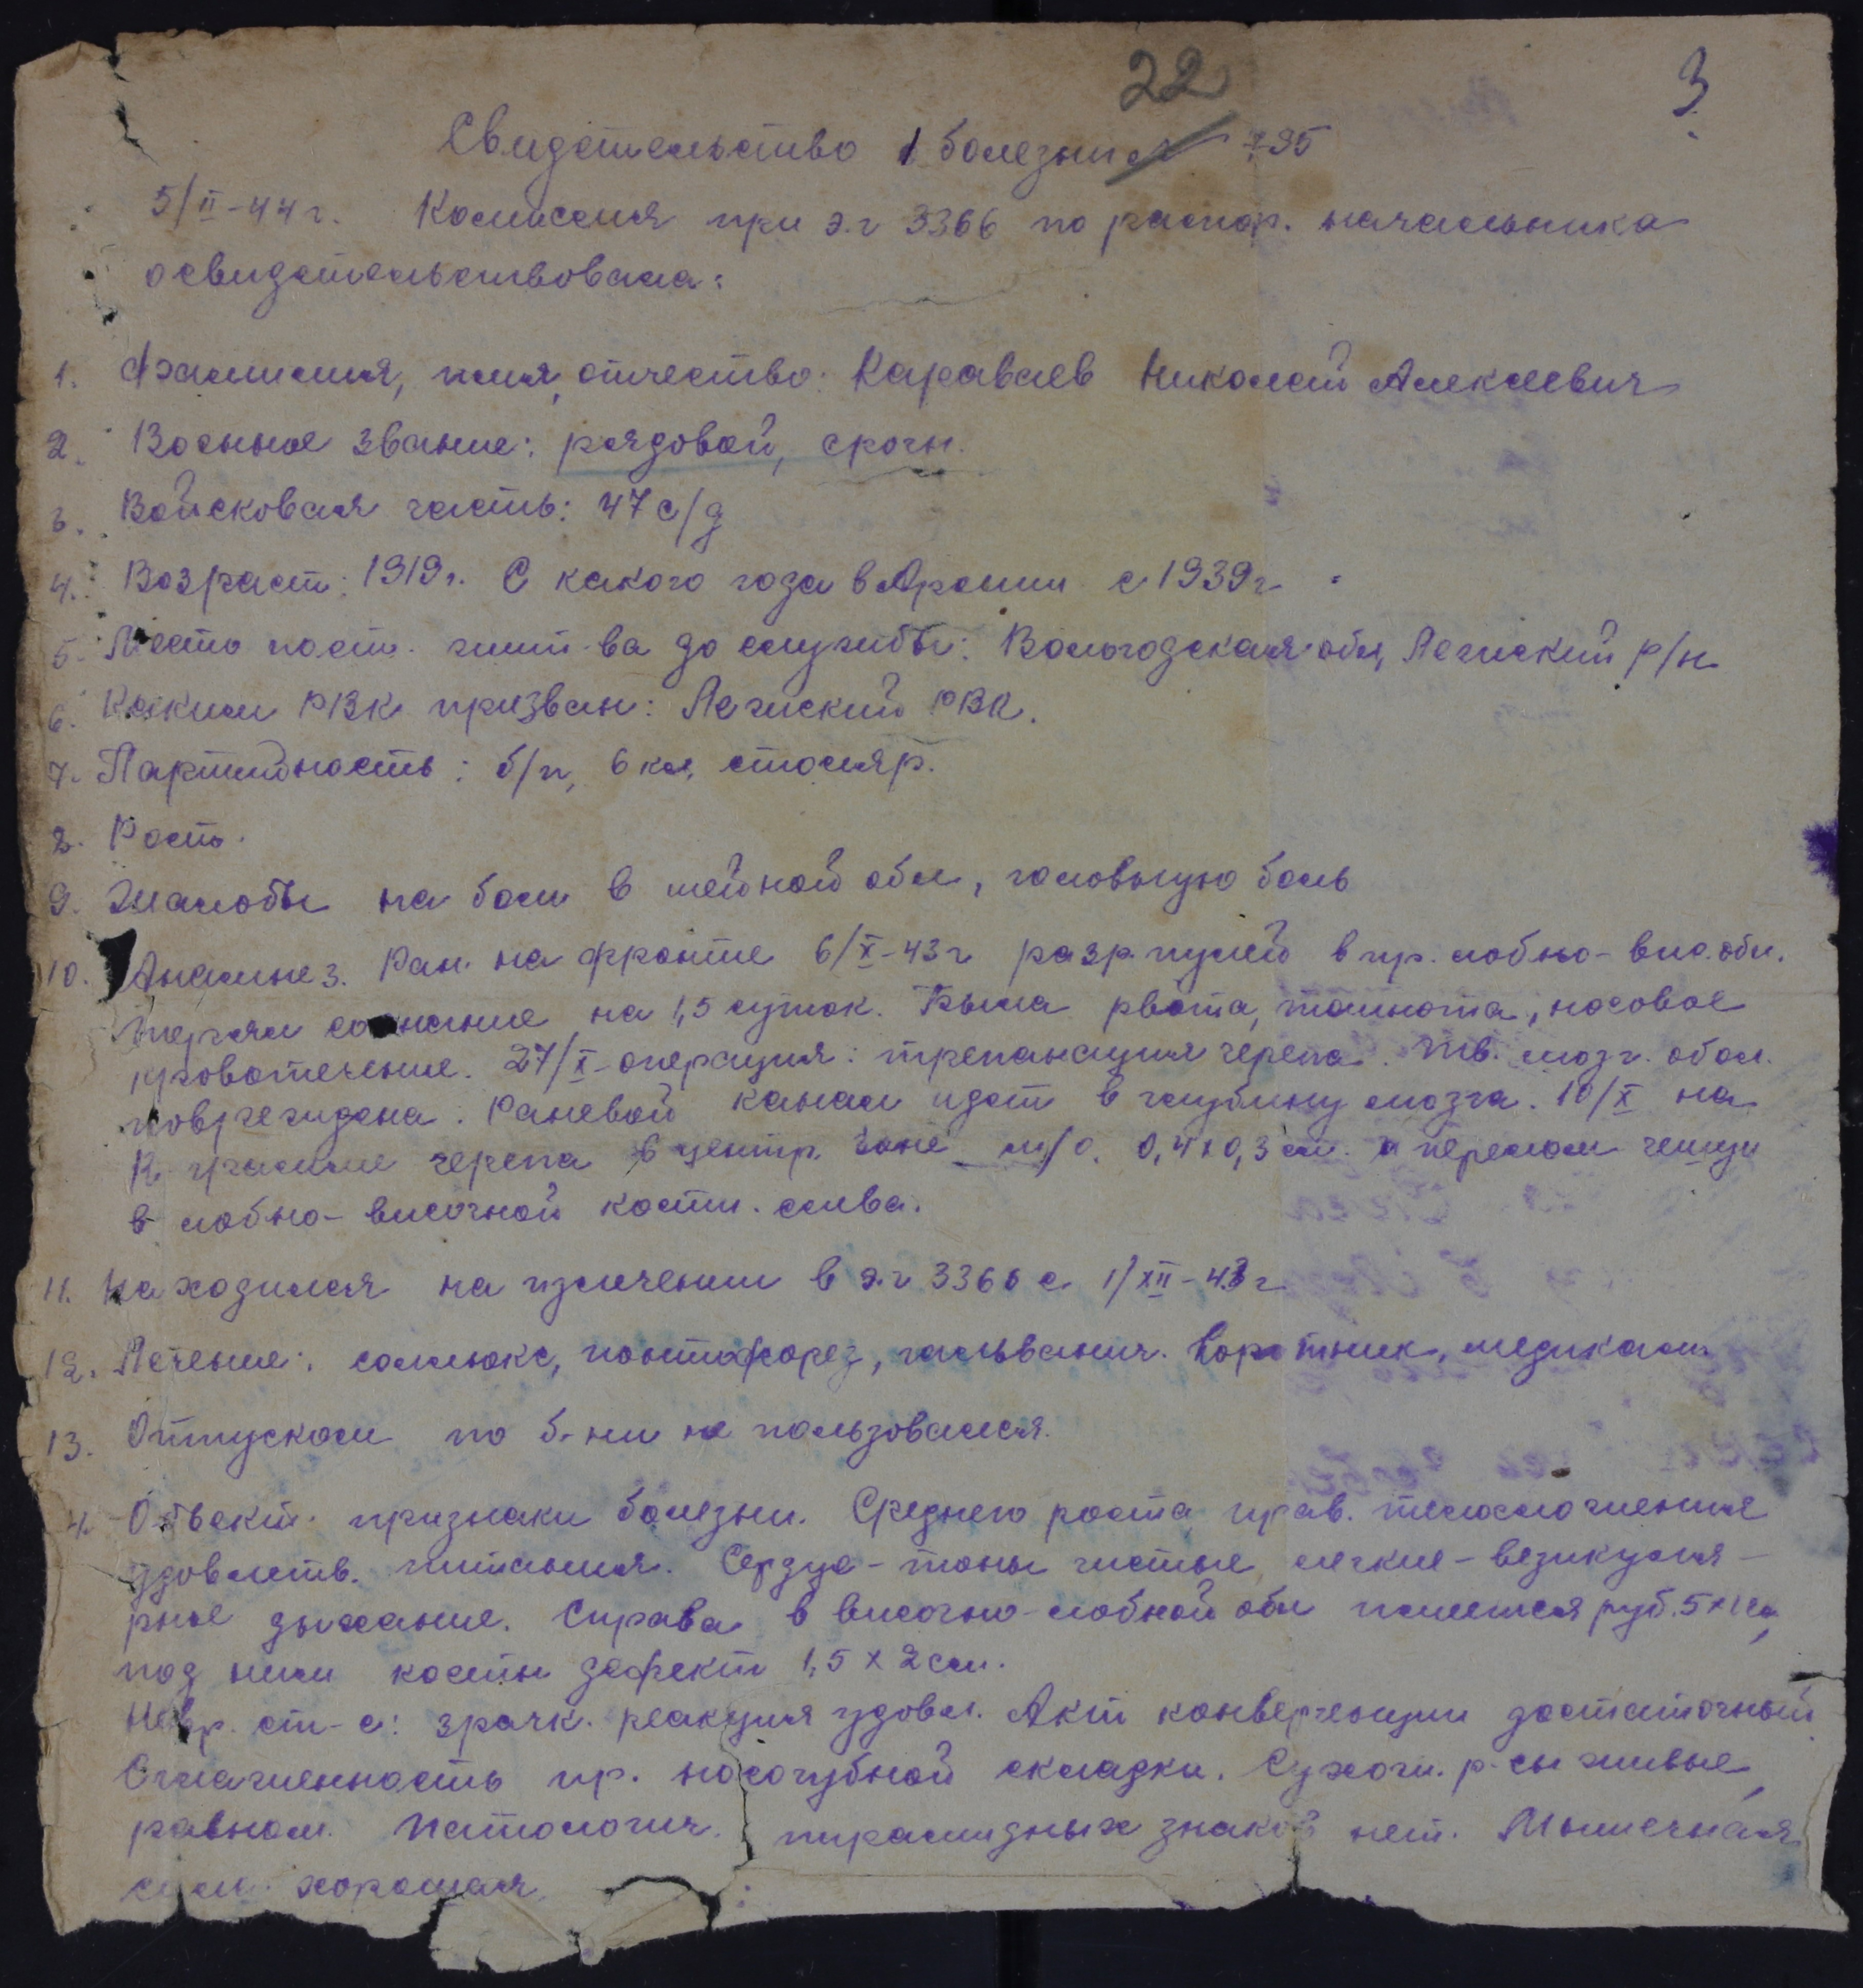 22
3
Свидетельство о болезни № 795
5/II-44 г. Комиссия при э.г 3366 по распор. начальника
освидетельствовала:
1. Фамилия, имя, отчество: Караваев Николай Алексеевич
2. Военное звание: рядовой, срочн.
3. Войсковая часть: 47 с/д
4. Возраст: 1919 г. С какого года в Армии с 1939 г
5. Место пост. жит-ва до службы: Вологодская обл, Лежский р/н
6. Каким РВК призван: Лежский РВК.
7. Партийность: б/п, 6 кл, столяр.
8. Рост.
9. Жалобы на боли в шейной обл, головную боль
10. Анамнез. Ран. на фронте 6/X-43 г разр. пулей в пр. лобно-вис. обл.
терял сознание на 1,5 суток. Была рвота, тошнота, носовое
кровотечение. 27/X-операция: трепанация черепа. Тв. мозг. обол.
повреждена. Раневой канал идет в глубину мозга. 10/X на
R. грамме черепа в центр. зоне м/о. 0,4х0,3 см. и перелом чешуи
в лобно-височной кости. слева.
11. Находился на излечении в э.г 3366 с 1/XII-43 г
12. Лечение: соллюкс, ионтофорез, гальванич. воротник, медикам.
13. Отпуском по б-ни не пользовался.
14. Объект. признаки болезни. Среднего роста, прав. телосложения
удовлетв. питания. Сердце-тоны чистые, легкие-везикуля-
рное дыхание. Справа в височно-лобной обл имеется руб. 5х1 см,
под ним костн дефект 1,5 х 2 см.
Невр. ст-с: зрачк. реакция удовл. Акт конвергенции достаточный
Сглаженность пр. носогубной складки. Сухож. р-сы живые,
равном. Патологич. пирамидных знаков нет. Мышечная
сила хорошая